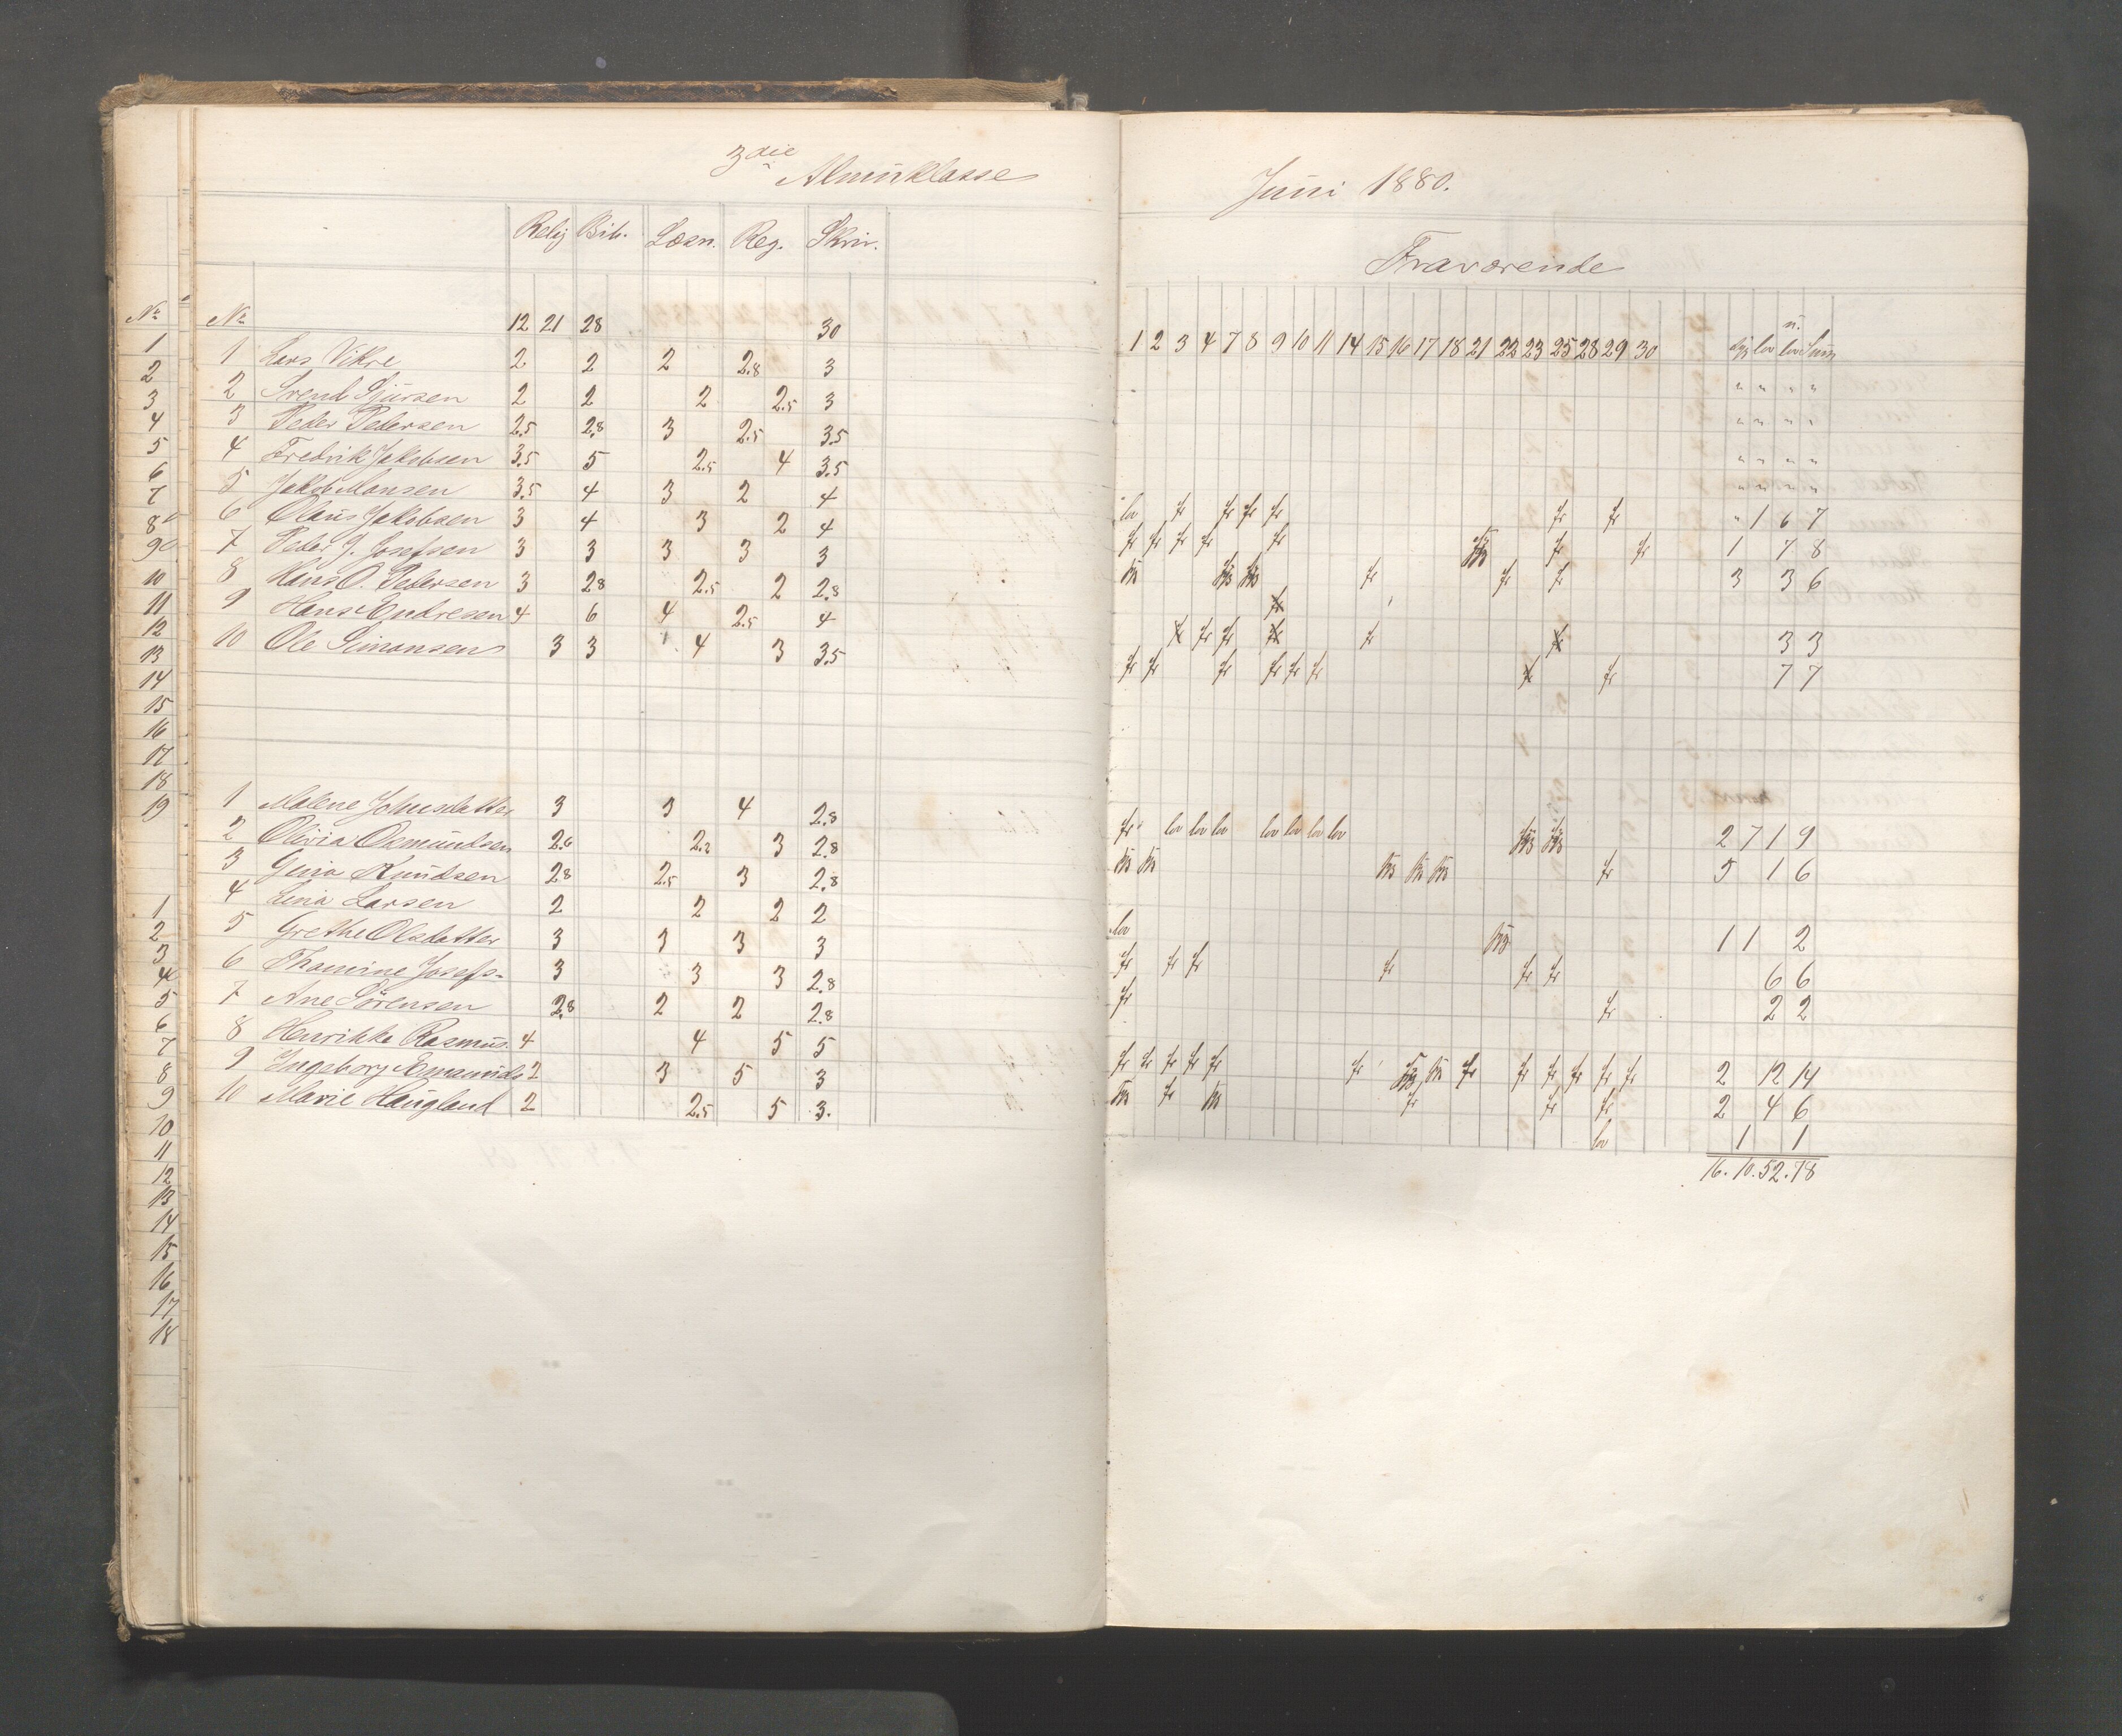 3die Almuklasse
Relig Bib. Læsn. Reg. Skriv.
No 12 21 28 30
1 Lars Vikre 2 2 2 2.8 3
2 Svend Sjursen 2 2 2 2.5 3
3 Peder Pedersen 2.5 2.8 3 2.5 3.5
4 Fredrik Jakobsen 3.5 5 2.5 4 3.5
5 Jakob Monsen 3.5 4 3 2 4
6 Olaus Jakobsen 3 4 3 2 4
7 Peder J. Josefsen 3 3 3 3 3
8 Hans O. Pedersen 3 2.8 2.5 2 2.8
9 Hans Endresen 4 6 4 2.5 4
10 Ole Simonsen 3 3 4 3 3.5
1 Malene Johnsdatter 3 3 4 2.8
2 Olivia Osmundsen 2.6 2.2 3 2.8
3 Gina Knudsen 2.8 2.5 3 2.8
4 Lina Larsen 2 2 2 2
5 Grethe Olsdatter 3 3 3 3
6 Thomine Josefs- 3 3 3 2.8
7 Ane Sørensen 2.8 2 2 2.8
8 Henrikke Rasmus. 4 4 5 5
9 Ingeborg Amunds 2 3 5 3
10 Marie Haugland 2 2.5 5 3.
No
1
2
3
4
5
6
7
8
9
10
11
12
13
14
15
16
17
18
19
1
2
3
4
5
6
7
8
9
10
11
12
13
14
15
16
17
18
Juni 1880.
Fraværende
1 2 3 4 7 8 9 10 11 14 15 16 17 18 21 22 23 25 28 29 30 syg lov u. lov Sum
" " " "
" " " "
" " " "
" " " "
lov fr fr fr fr fr fr " 1 6 7
fr fr fr fr fr fr fr 1 7 8
fr fr fr 3 3 6
fr fr fr 3 3
fr fr fr fr fr fr fr 7 7
fr lov lov lov lov lov lov lov 2 7 1 9
fr 5 1 6
lov 1 1 2
fr fr fr fr fr fr 6 6
fr fr 2 2
fr fr fr fr fr fr fr fr fr fr fr fr 2 12 14
fr fr fr fr 2 4 6
lov 1 1
16. 10. 52. 78